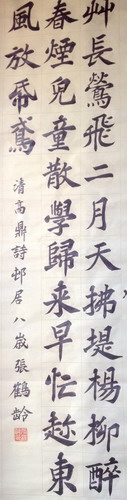 艸長鶯飛二月天拂堤楊柳醉
春煙兒童散學歸来早忙趂東
風放帋鳶
清高鼎詩邨居八歲張鶴齡